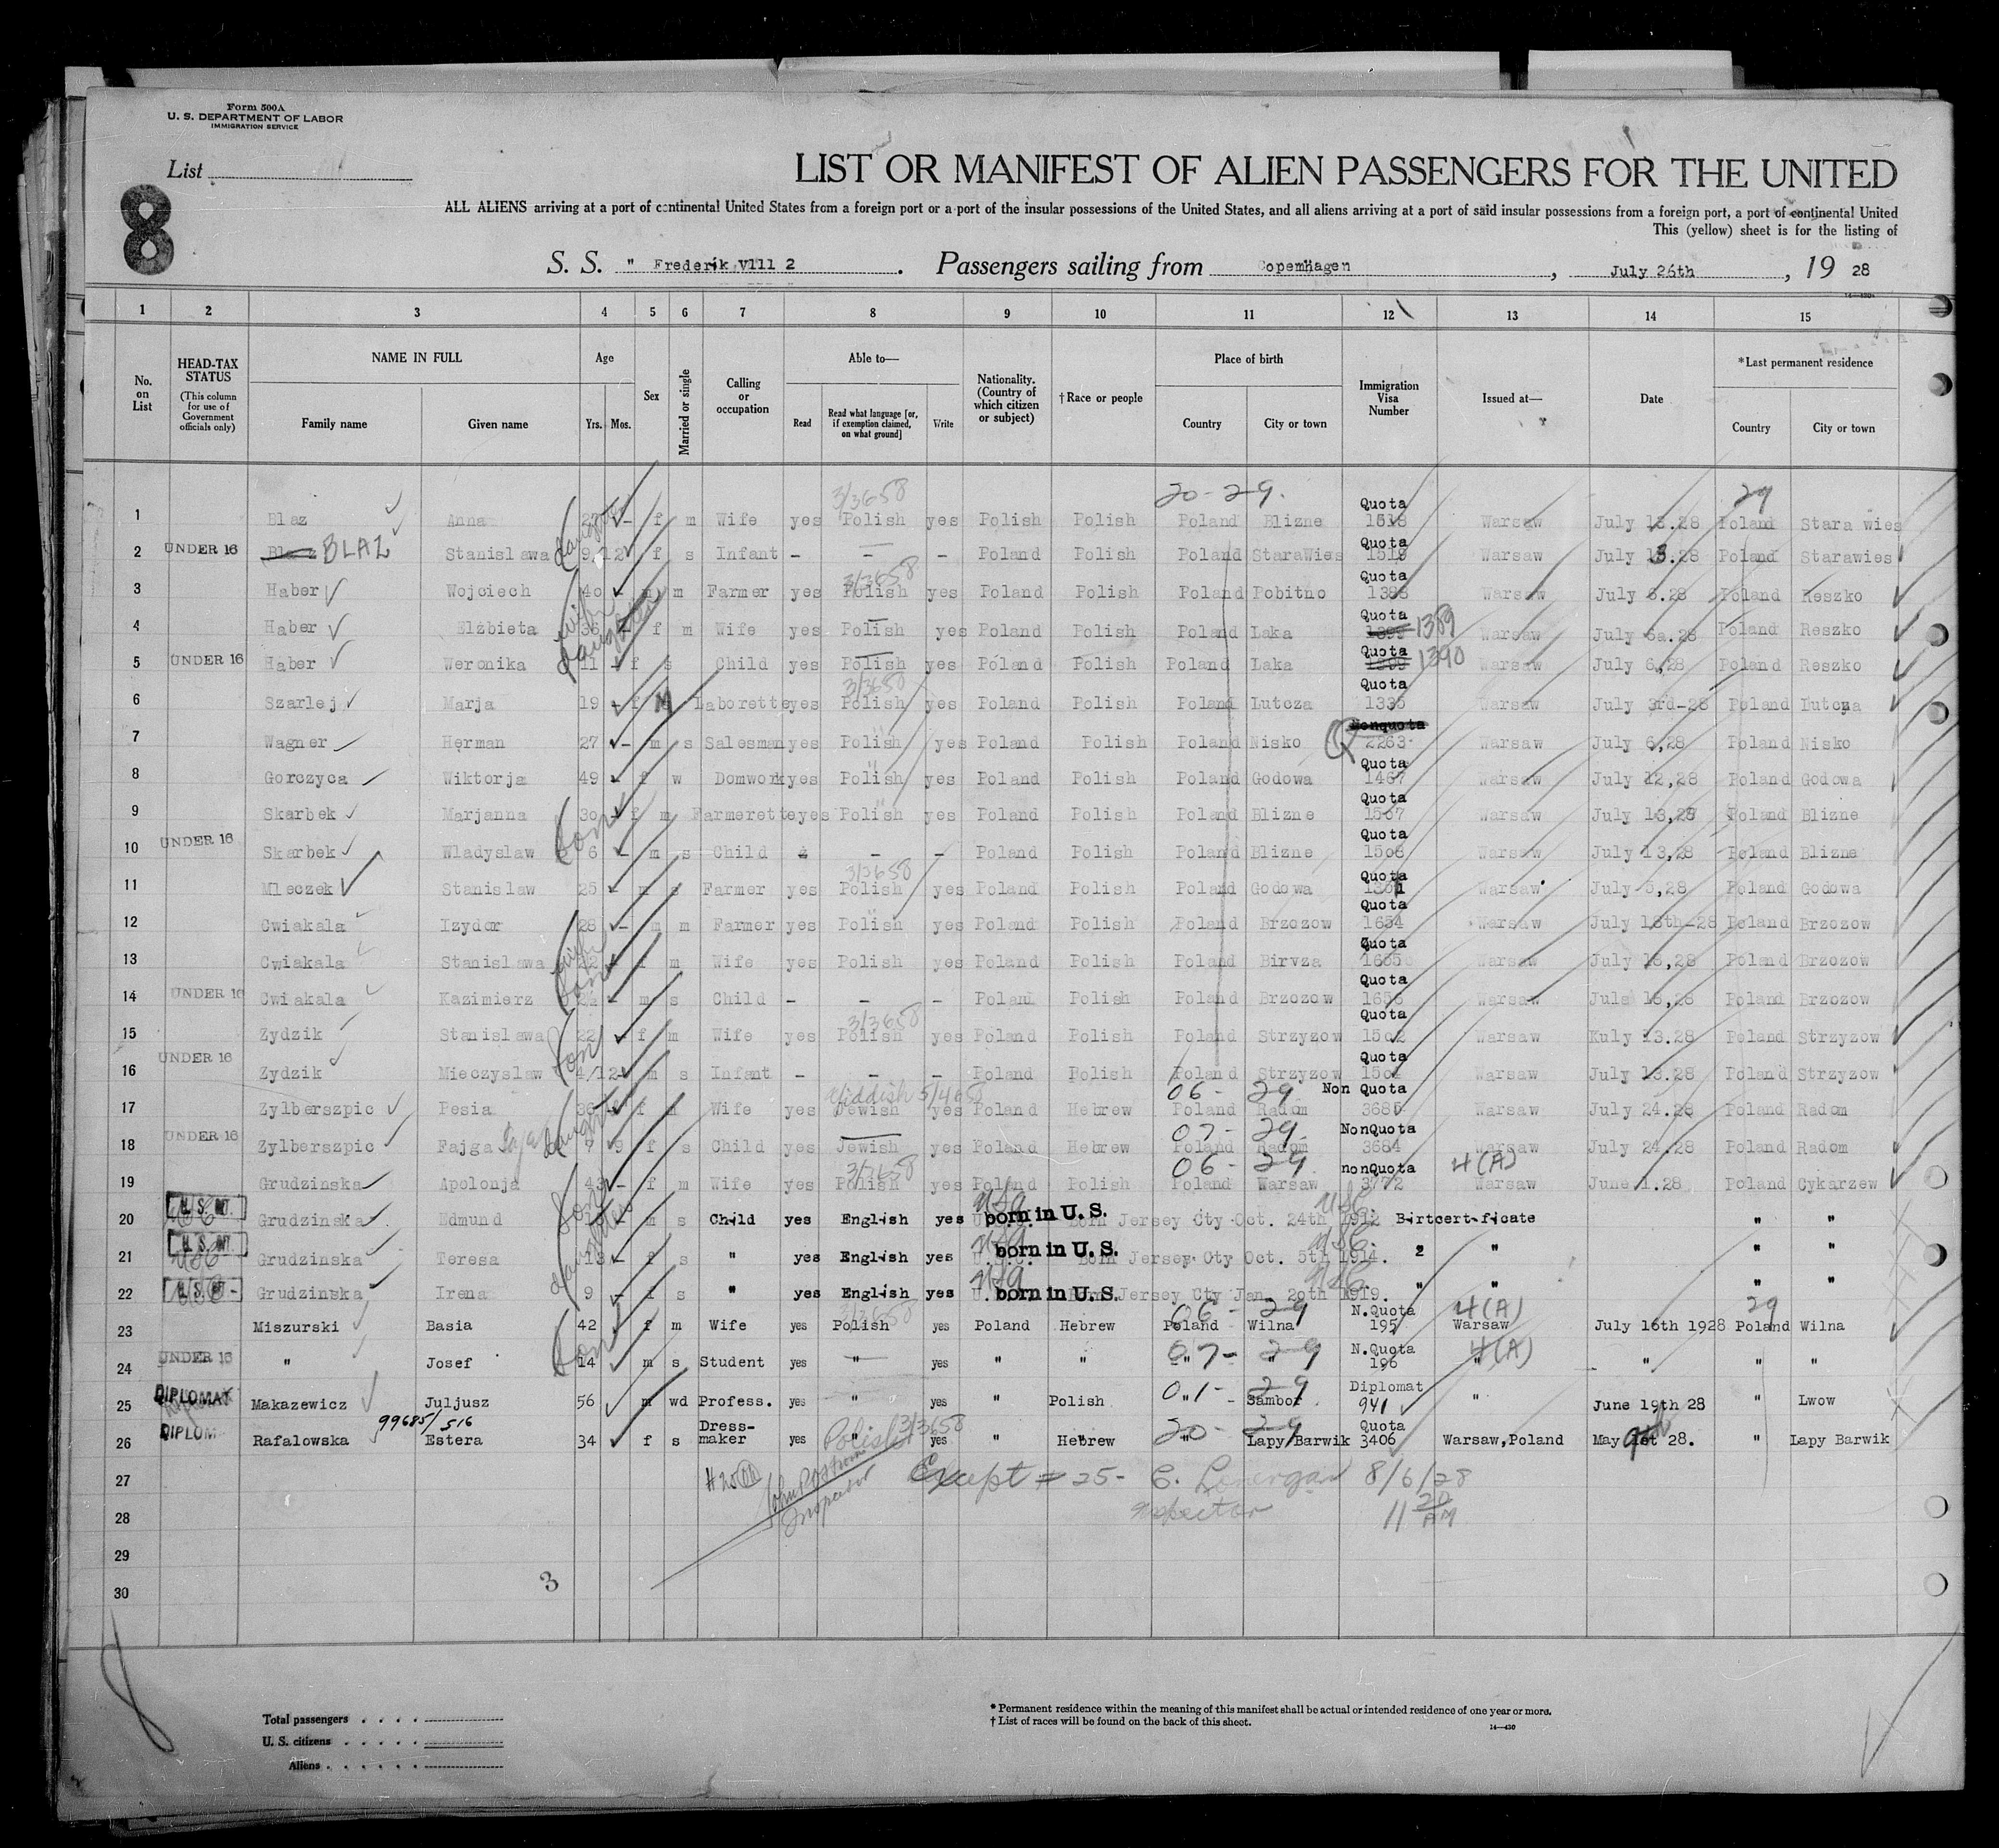 Form 500A
U. S. DEPARTMENT OF LABOR
IMMIGRATION SERVICE
List
8
LIST OR MANIFEST OF ALIEN PASSENGERS FOR THE UNITED
ALL ALIENS arriving at a port of continental United States from a foreign port or a port of the insular possessions of the United States, and all aliens arriving at a port of said insular possessions from a foreign port, a port of continental United
This (yellow) sheet is for the listing of
S. S. " Frederik Vlll 2 . Passengers sailing from Copemhagen , July 26th , 19 28
1 2 3 4 5 6 7 8 9 10 11 12 13 14 15
No. on List
HEAD-TAX STATUS (This column for use of Government officials only)
NAME IN FULL
Family name Given name
Age
Yrs. Mos.
Sex
Married or single
Calling or occupation
Able to—
Read Read what language [or, if exemption claimed, on what ground] Write
Nationality. (Country of which citizen or subject)
†Race or people
Place of birth
Country City or town
Immigration Visa Number
Issued at—
Date
*Last permanent residence
Country City or town
20-29. 29
1 Blaz Anna f m Wife yes Polish yes Polish Polish Poland Blizne Quota 1518 Warsaw July 13.28 Poland Stara wies
2 UNDER 16 BLAZ Stanislawa 9/12 f s Infant - - - Poland Polish Poland StaraWies Quota 1519 Warsaw July 13.28 Poland Starawies
3 Haber Wojciech 40 - m m Farmer yes Polish yes Poland Polish Poland Pobitno Quota 1388 Warsaw July 6.28 Poland Reszko
4 Haber Elzbieta 36 - f m Wife yes Polish yes Poland Polish Poland Laka Quota 1389 Warsaw July 6a.28 Poland Reszko
5 UNDER 16 Haber Weronika 11 - f s Child yes Polish yes Poland Polish Poland Laka Quota 1390 Warsaw July 6,28 Poland Reszko
6 Szarlej Marja 19 - f M Laborette yes Polish yes Poland Polish Poland Lutcza Quota 1335 Warsaw July 3rd-28 Poland Lutcza
7 Wagner Herman 27 - m s Salesman yes Polish yes Poland Polish Poland Nisko Nonquota Q 2263 Warsaw July 6,28 Poland Nisko
8 Gorczyca Wiktorja 49 - f w Domwork yes Polish yes Poland Polish Poland Godowa Quota 1467 Warsaw July 12,28 Poland Godowa
9 Skarbek Marjanna 30 - f m Farmerette yes Polish yes Poland Polish Poland Blizne Quota 1507 Warsaw July 13,28 Poland Blizne
10 UNDER 16 Skarbek Wladyslaw 6 - m s Child - - Poland Polish Poland Blizne Quota 1508 Warsaw July 13,28 Poland Blizne
11 Mleczek Stanislaw 25 - m s Farmer yes Polish yes Poland Polish Poland Godowa Quota Warsaw July 5,28 Poland Godowa
12 Cwiakala Izydor 28 - m m Farmer yes Polish yes Poland Polish Poland Brzozow Quota 1654 Warsaw July 18th-28 Poland Brzozow
13 Cwiakala Stanislawa 22 - f m Wife yes Polish yes Poland Polish Poland Birvza Quota 1655 Warsaw July 18,28 Poland Brzozow
14 UNDER 16 Cwiakala Kazimierz - m s Child - - - Poland Polish Poland Brzozow Quota 1656 Warsaw 18,28 Poland Brzozow
15 Zydzik Stanislawa 22 - f m Wife yes Polish yes Poland Polish Poland Strzyzow Quota 1502 Warsaw Kuly 13.28 Poland Strzyzow
16 UNDER 16 Zydzik Mieczyslaw 4/12 m s Infant - - - Poland Polish Poland Strzyzow Quota Warsaw July 13.28 Poland Strzyzow
Yiddish 06 - 29 Non Quota
17 Zylberszpic Pesia 36 f m Wife yes Jewish yes Poland Hebrew Poland Radom 3685 Warsaw July 24.28 Poland Radom
07 - 29 NonQuota
18 UNDER 16 Zylberszpic Fajga 7 9 f s Child yes Jewish yes Poland Hebrew Poland Radom 3684 Warsaw July 24.28 Poland Radom
06 - 29 nonQuota 4(A)
19 Grudzinska Apolonja 43 - f m Wife yes Polish yes Poland Polish Poland Warsaw 3772 Warsaw June 1.28 Poland Cykarzew
20 Grudzinska Edmund - m s Child yes English yes born in U. S. Born Jersey Cty Oct. 24th 1912 Birtcertificate " "
21 Grudzinska Teresa 13 - f s " yes English yes born in U. S. Born Jersey Cty Oct. 5th 1914. 2 " " "
22 Grudzinska Irena 9 - f s " yes English yes born in U. S. Born Jersey Cty Jan. 20th 1919. " " " "
06 - 29 4(A) 29
23 Miszurski Basia 42 f m Wife yes Polish yes Poland Hebrew Poland Wilna N.Quota 195 Warsaw July 16th 1928 Poland Wilna
24 UNDER 16 " Josef 14 m s Student yes " yes " " 07 - 29 N.Quota 196 4(A) " " " "
25 DIPLOMAT Makazewicz Juljusz 56 m wd Profess. yes " yes " Polish 01 - 29 Sambor Diplomat 941 " June 19th 28 " Lwow
99685/516
26 DIPLOM Rafalowska Estera 34 f s Dress-maker yes Polish yes " Hebrew 20 - 29 Lapy Barwik Quota 3406 Warsaw, Poland May 28. " Lapy Barwik
27 Except # 25 - C. Lonergan 8/6/28
28 Inspector 11 20 AM
Inspector
29
30
3
Total passengers . . . .
U. S. citizens . . . . .
Aliens . . . . . .
* Permanent residence within the meaning of this manifest shall be actual or intended residence of one year or more.
† List of races will be found on the back of this sheet.
14—430